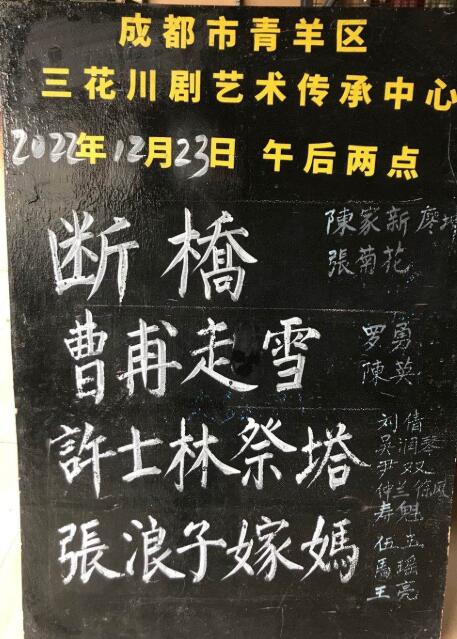 成都市青羊区
三花川剧艺术传承中心
2022年12月23日 午后两点
断橋 陳家新 廖
張菊花
曹甫走雪 罗勇
陳英
許士林祭塔 刘倩
吴润琴
尹双
仲兰 徐凤
寿魁
張浪子嫁媽 伍
瑶
王亮